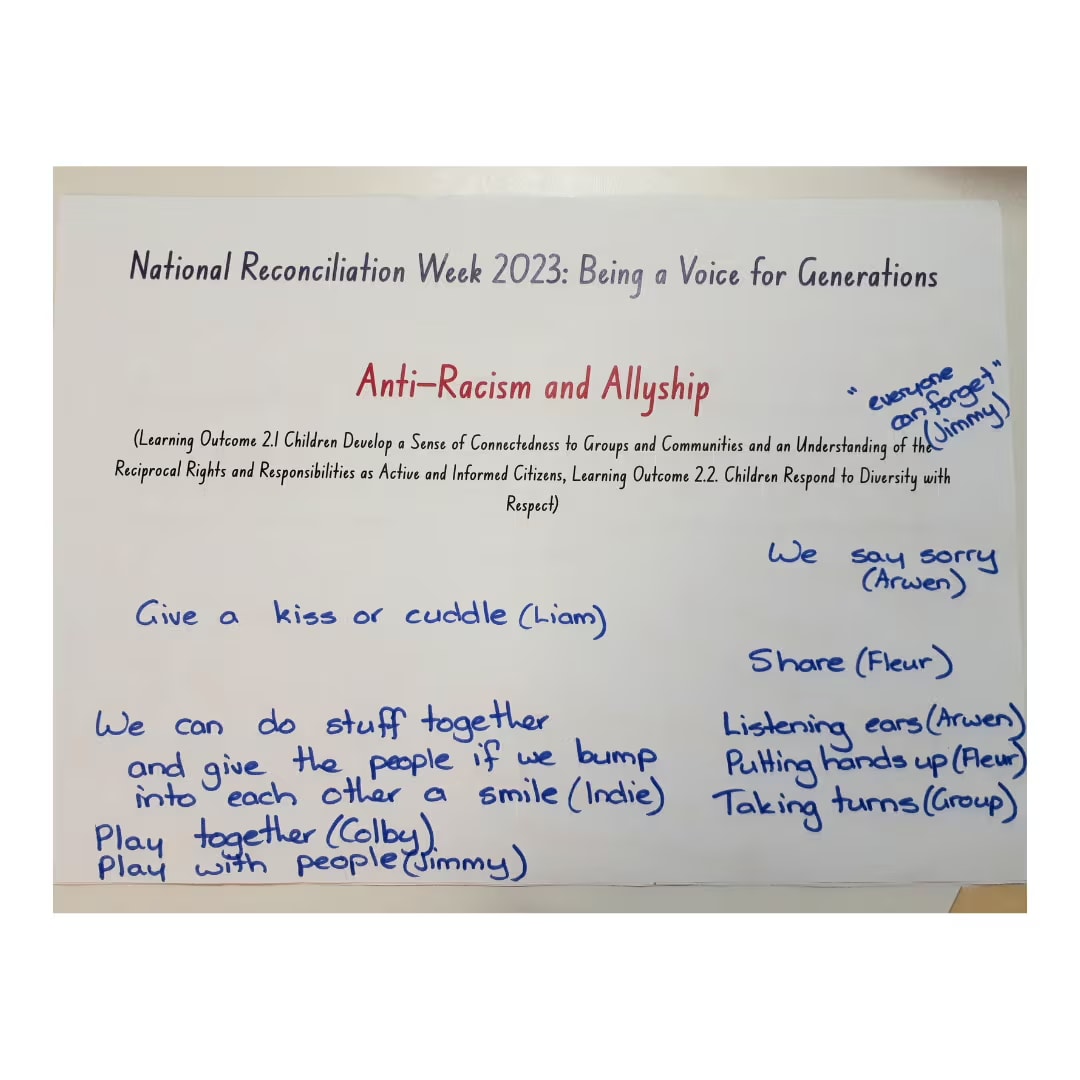 National Reconciliation Week 2023: Being a Voice for Generations
Anti-Racism and Allyship
"everyone
can forget"
(Jimmy)
(Learning Outcome 2.1 Children Develop a Sense of Connectedness to Groups and Communities and an Understanding of the
Reciprocal Rights and Responsibilities as Active and Informed Citizens, Learning Outcome 2.2. Children Respond to Diversity with
Respect)
We say sorry
(Arwen)
Give a kiss or cuddle (Liam)
Share (Fleur)
We can do stuff together
and give the people if we bump
into each other a smile (Indie)
Play together (Colby)
Play with people (Jimmy)
Listening ears (Arwen)
Putting hands up (Fleur)
Taking turns (Group)